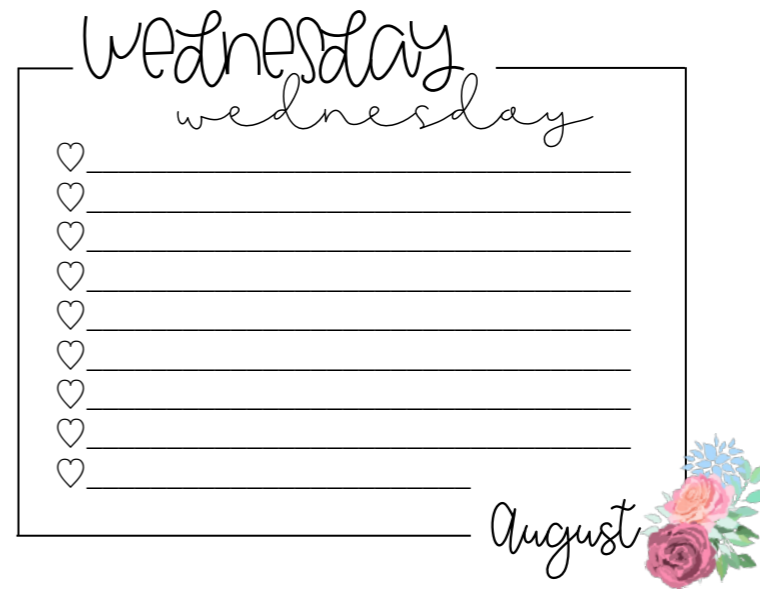 wednesday
wednesday
august